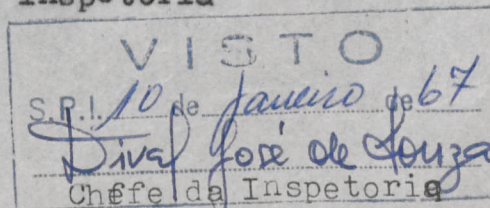 Inspetoria
VISTO
S.P.I. 10 de janeiro de 67
Dival José de Souza
Chefe da Inspetoria